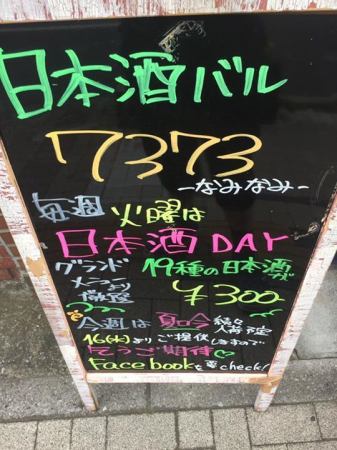 日本酒バル
7373
-なみなみ-
毎週 火曜は
日本酒DAY
グランド メニューより 厳選
19種の日本酒が
¥300
今週は 夏吟 続々入荷予定
16(火)よりご提供しますので
乞うご期待♡
Facebookを要check!